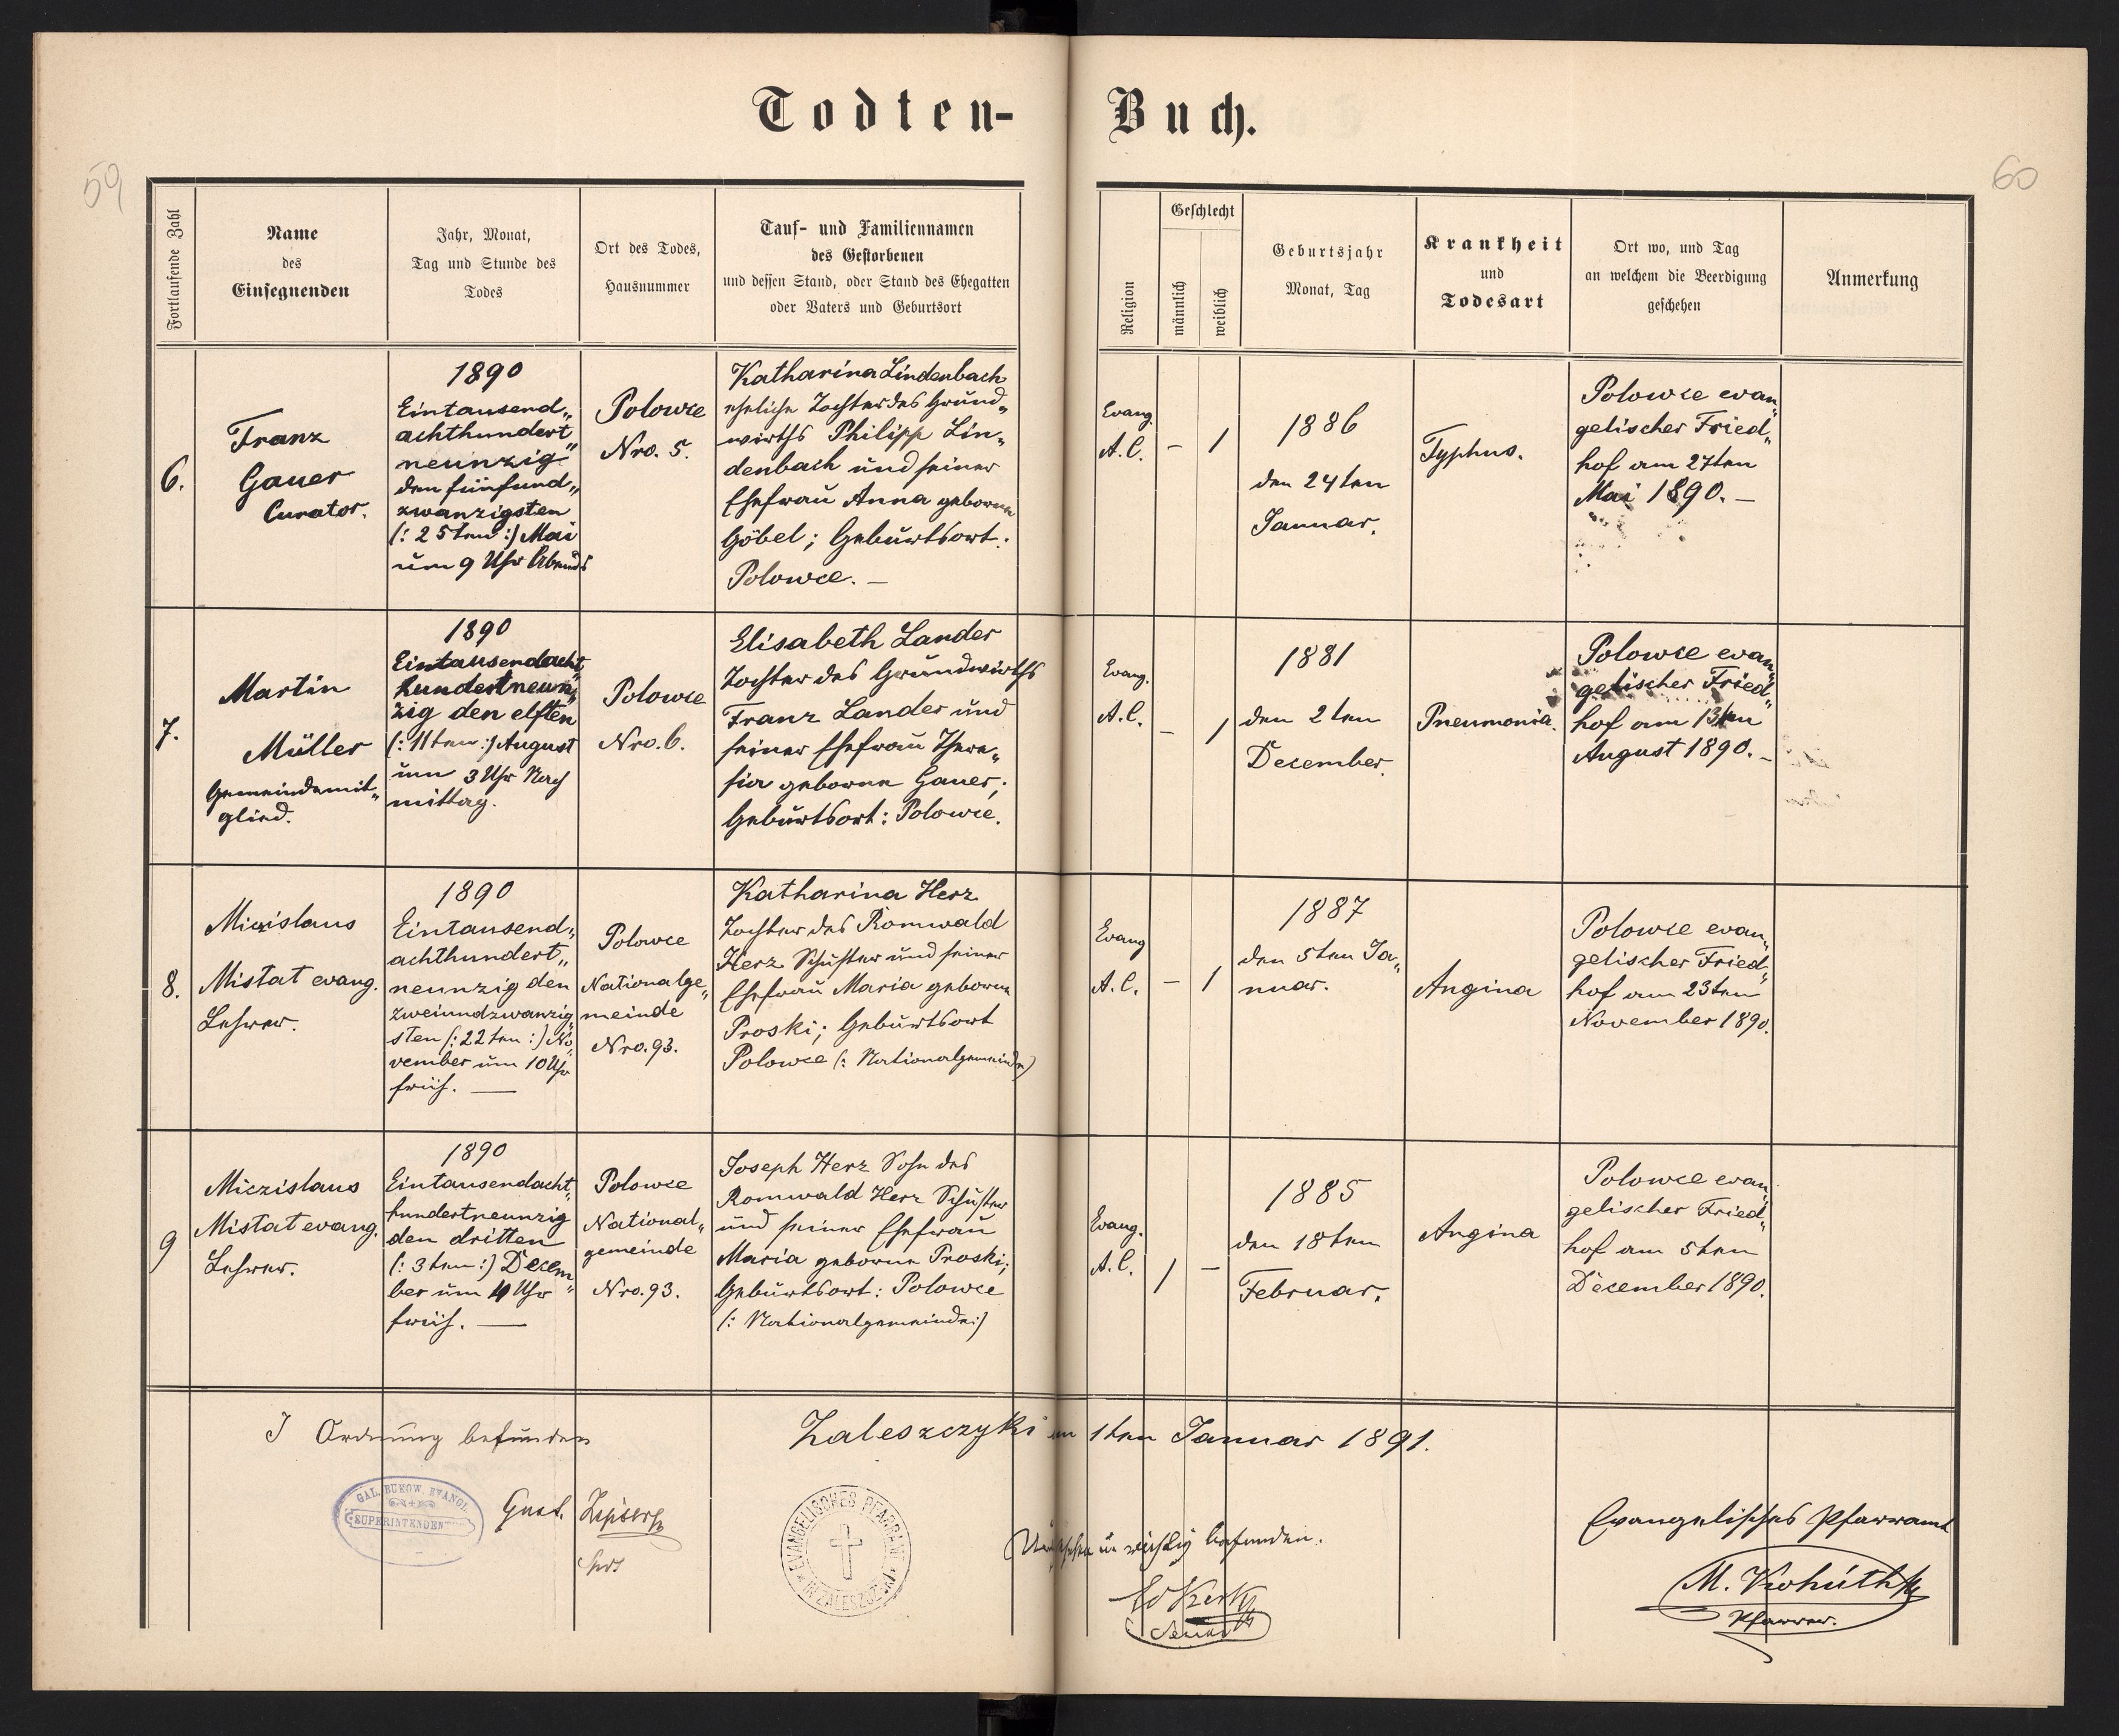 Todten-
Buch.
59
60
Fortlaufende Zahl
Name
des
Einsegnenden
Jahr, Monat,
Tag und Stunde des
Todes
Ort des Todes,
Hausnummer
Tauf- und Familiennamen
des Gestorbenen
und dessen Stand, oder Stand des Ehegatten
oder Vaters und Geburtsort
Religion
Geschlecht
männlich
weiblich
Geburtsjahr
Monat, Tag
Krankheit
und
Todesart
Ort wo, und Tag
an welchem die Beerdigung
geschehen
Anmerkung
6.
Franz
Gauer
Curator.
1890
Eintausend„
achthundert„
neunzig
den fünfund„
zwanzigsten
(: 25ten :) Mai
um 9 Uhr Abends
Polowce
Nro. 5.
Katharina Lindenbach
eheliche Tochter des Grund„
wirths Philipp Lin„
denbach und seiner
Ehefrau Anna geborne
Göbel; Geburtsort:
Polowce. —
Evang.
A.C.
– 1
1886
den 24ten
Januar.
Typhus.
Polowce evan„
gelischer Fried„
hof am 27ten
Mai 1890. —
7.
Martin
Müller
Gemeindemit„
glied.
1890
Eintausendacht„
hundertneun„
zig den elften
(: 11ten :) August
um 3 Uhr Nach
mittag.
Polowce
Nro. 6.
Elisabeth Lander
Tochter des Grundwirths
Franz Lander und
seiner Ehefrau There„
sia geborne Gauer;
Geburtsort: Polowce.
Evang.
A.C.
– 1
1881
den 2ten
December.
Pneumonia.
Polowce evan„
gelischer Fried„
hof am 13ten
August 1890. –
8.
Miczislaus
Mistat evang.
Lehrer.
1890
Eintausend„
achthundert„
neunzig den
zweiundzwanzig„
sten (: 22ten :) No„
vember um 10 Uhr
früh. —
Polowce
Nationalge„
meinde
Nro. 93.
Katharina Herz
Tochter des Romwald
Herz Schuster und seiner
Ehefrau Maria geborne
Proski; Geburtsort
Polowce (: Nationalgemeinde)
Evang
A.C.
– 1
1887
den 5ten Ja„
nuar.
Angina
Polowce evan„
gelischer Fried„
hof am 23ten
November 1890.
9
Miczislaus
Mistat evang.
Lehrer.
1890
Eintausendacht„
hundertneunzig
den dritten
(: 3ten :) Decem„
ber um 4 Uhr
früh. —
Polowce
National„
gemeinde
Nro. 93.
Joseph Herz Sohn des
Romwald Herz Schuster
und seiner Ehefrau
Maria geborne Proski;
Geburtsort: Polowce
(: Nationalgemeinde :)
Evang.
A.C.
1 –
1885
den 18ten
Februar.
Angina
Polowce evan„
gelischer Fried„
hof am 5ten
December 1890.
I Ordnung befunden
Zaleszczyki am 1ten Januar 1891.
GAL. BUKOW. EVANGL.
SUPERINTENDENT
Gust.
EVANGELISCHES PFARRAMT
IN ZALESZCZYKI
richtig befunden.
Evangelisches Pfarramt
M. Kohúth
Pfarrer.